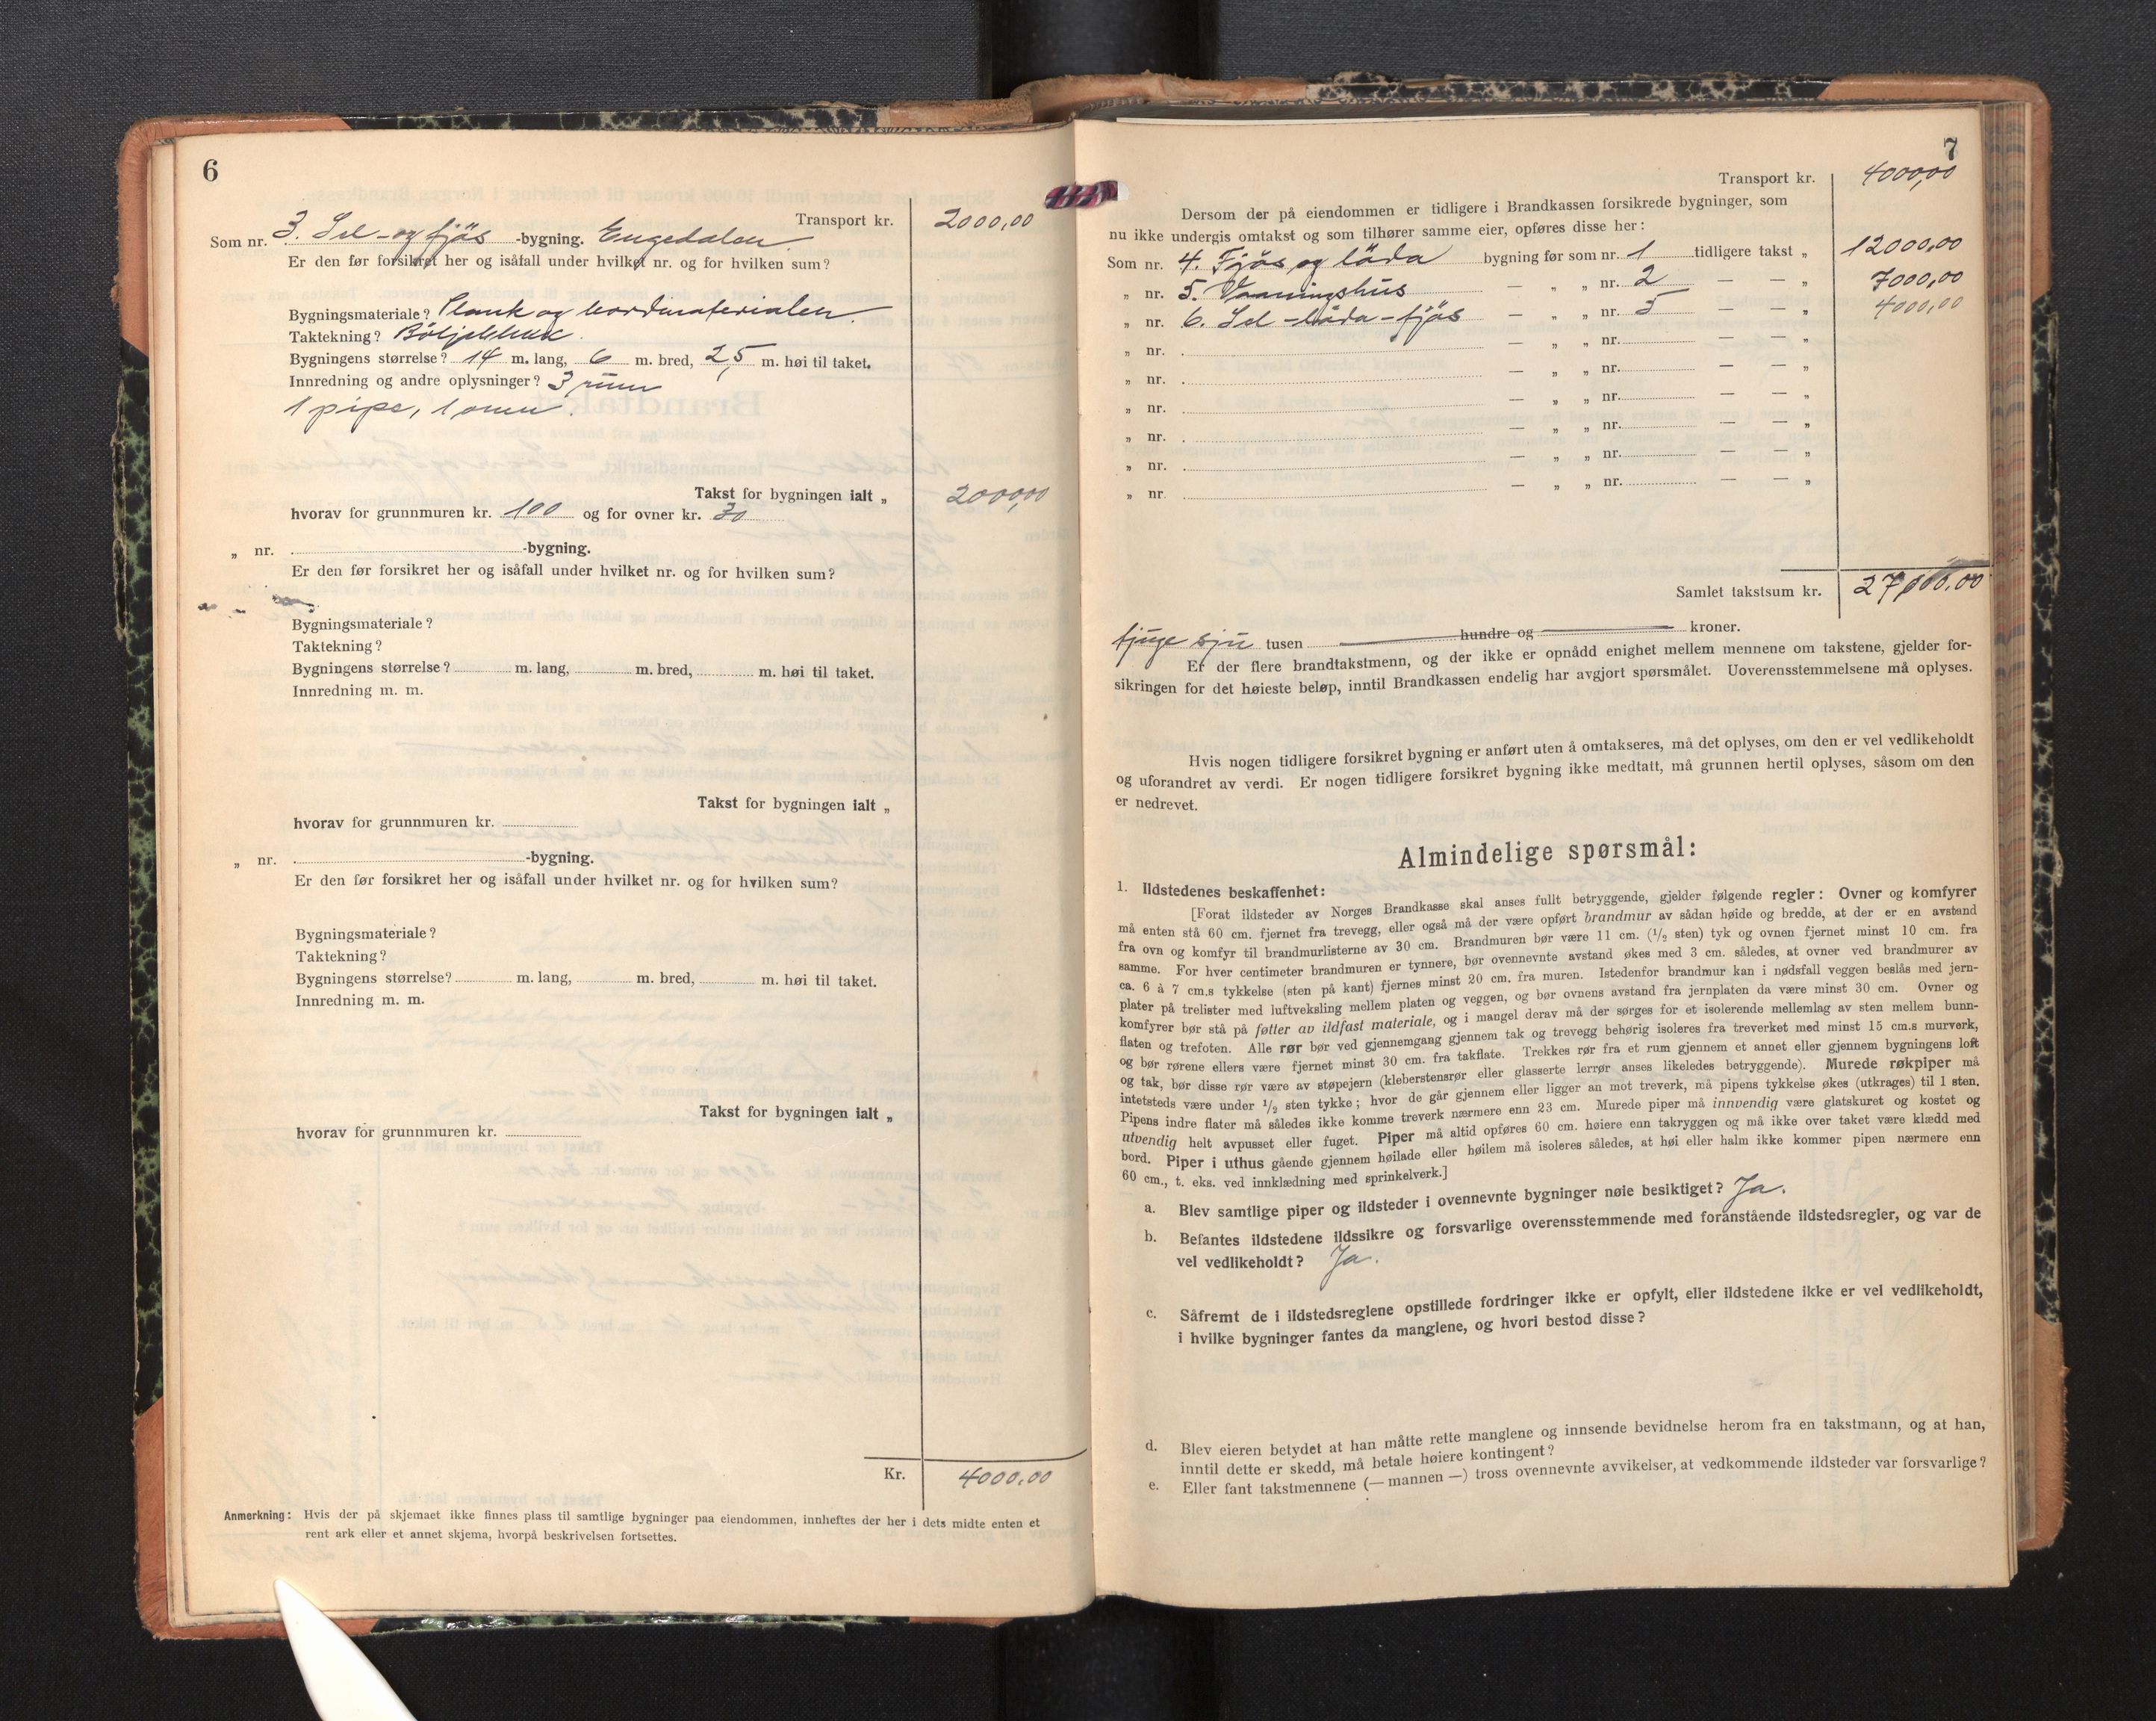 6
Transport kr. 2000,00
Som nr. 3. Sel-og fjös -bygning. Engedalen
Er den før forsikret her og isåfall under hvilket nr. og for hvilken sum?
Bygningsmateriale? Plank og bordmaterialen.
Taktekning? Bölgeblekk.
Bygningens størrelse? 14 m. lang, 6 m. bred, 2,5 m. høi til taket.
Innredning og andre oplysninger? 3 rum
1 pipe, 1 omn.
Takst for bygningen ialt „ 2000,00
hvorav for grunnmuren kr. 100 og for ovner kr. 30
„ nr. -bygning.
Er den før forsikret her og isåfall under hvilket nr. og for hvilken sum?
Bygningsmateriale?
Taktekning?
Bygningens størrelse? m. lang, m. bred, m. høi til taket.
Innredning m. m.
Takst for bygningen ialt „
hvorav for grunnmuren kr.
„ nr. -bygning.
Er den før forsikret her og isåfall under hvilket nr. og for hvilken sum?
Bygningsmateriale?
Taktekning?
Bygningens størrelse? m. lang, m. bred, m. høi til taket.
Innredning m. m.
Takst for bygningen ialt „
hvorav for grunnmuren kr.
Kr. 4000.00
Anmerkning: Hvis der på skjemaet ikke finnes plass til samtlige bygninger paa eiendommen, innheftes der her i dets midte enten et
rent ark eller et annet skjema, hvorpå beskrivelsen fortsettes.
7
Transport kr. 4000,00
Dersom der på eiendommen er tidligere i Brandkassen forsikrede bygninger, som
nu ikke undergis omtakst og som tilhører samme eier, opføres disse her:
Som nr. 4. Fjös og löda bygning før som nr. 1 tidligere takst „ 12000,00
„ nr. 5. Vaaningshus — „ „ nr. 2 — — „ 7000,00
„ nr. 6. Sel-löda-fjös — „ „ nr. 5 — — „ 4000,00
„ nr. — „ „ nr. — — „
„ nr. — „ „ nr. — — „
„ nr. — „ „ nr. — — „
„ nr. — „ „ nr. — — „
„ nr. — „ „ nr. — — „
„ nr. — „ „ nr. — — „
Samlet takstsum kr. 27000.00
tjuge sju tusen hundre og kroner.
Er der flere brandtakstmenn, og der ikke er opnådd enighet mellem mennene om takstene, gjelder for-
sikringen for det høieste beløp, inntil Brandkassen endelig har avgjort spørsmålet. Uoverensstemmelsene må oplyses.
Hvis nogen tidligere forsikret bygning er anført uten å omtakseres, må det oplyses, om den er vel vedlikeholdt
og uforandret av verdi. Er nogen tidligere forsikret bygning ikke medtatt, må grunnen hertil oplyses, såsom om den
er nedrevet.
Almindelige spørsmål:
1. Ildstedenes beskaffenhet:
[Forat ildsteder av Norges Brandkasse skal anses fullt betryggende, gjelder følgende regler: Ovner og komfyrer
må enten stå 60 cm. fjernet fra trevegg, eller også må der være opført brandmur av sådan høide og bredde, at der er en avstand
fra ovn og komfyr til brandmurlisterne av 30 cm. Brandmuren bør være 11 cm. (1/2 sten) tyk og ovnen fjernet minst 10 cm. fra
samme. For hver centimeter brandmuren er tynnere, bør ovennevnte avstand økes med 3 cm. således, at ovner ved brandmurer av
ca. 6 à 7 cm.s tykkelse (sten på kant) fjernes minst 20 cm. fra muren. Istedenfor brandmur kan i nødsfall veggen beslås med jern-
plater på trelister med luftveksling mellem platen og veggen, og bør ovnens avstand fra jernplaten da være minst 30 cm. Ovner og
komfyrer bør stå på føtter av ildfast materiale, og i mangel derav må der sørges for et isolerende mellemlag av sten mellem bunn-
flaten og trefoten. Alle rør bør ved gjennemgang gjennem tak og trevegg behørig isoleres fra treverket med minst 15 cm.s murverk,
og bør rørene ellers være fjernet minst 30 cm. fra takflate. Trekkes rør fra et rum gjennem et annet eller gjennem bygningens loft
og tak, bør disse rør være av støpejern (kleberstensrør eller glasserte lerrør anses likeledes betryggende). Murede røkpiper må
intetsteds være under 1/2 sten tykke; hvor de går gjennem eller ligger an mot treverk, må pipens tykkelse økes (utkrages) til 1 sten.
Pipens indre flater må således ikke komme treverk nærmere enn 23 cm. Murede piper må innvendig være glatskuret og kostet og
utvendig helt avpusset eller fuget. Piper må altid opføres 60 cm. høiere enn takryggen og må ikke over taket være klædd med
bord. Piper i uthus gående gjennem høilade eller høilem må isoleres således, at høi eller halm ikke kommer pipen nærmere enn
60 cm., t. eks. ved innklædning med sprinkelverk.]
a. Blev samtlige piper og ildsteder i ovennevnte bygninger nøie besiktiget? Ja.
b. Befantes ildstedene ildssikre og forsvarlige overensstemmende med foranstående ildstedsregler, og var de
vel vedlikeholdt? Ja.
c. Såfremt de i ildstedsreglene opstillede fordringer ikke er opfylt, eller ildstedene ikke er vel vedlikeholdt,
i hvilke bygninger fantes da manglene, og hvori bestod disse?
d. Blev eieren betydet at han måtte rette manglene og innsende bevidnelse herom fra en takstmann, og at han,
inntil dette er skedd, må betale høiere kontingent?
e. Eller fant takstmennene (— mannen —) tross ovennevnte avvikelser, at vedkommende ildsteder var forsvarlige?